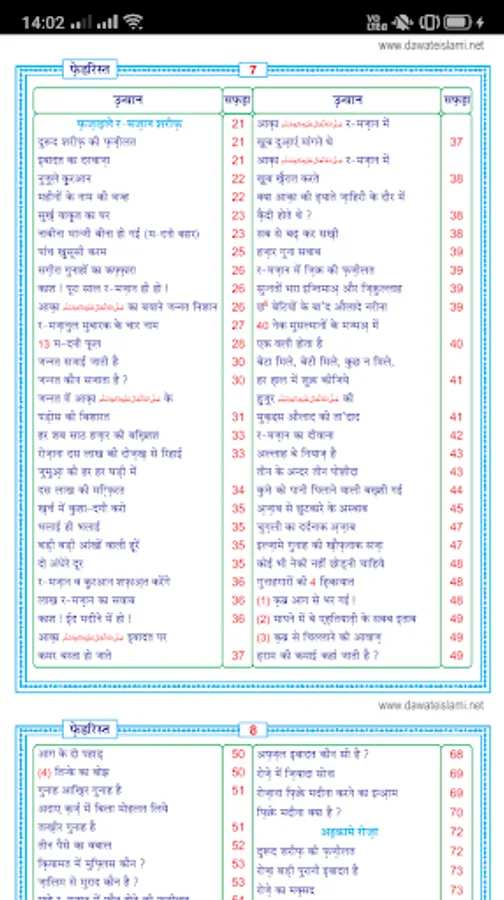 14:02
www.dawateislami.net
फ़ेहरिस्त
7
उ़न्वान
सफ़ह़ा
फ़ज़ाइले र-मज़ान शरीफ़ 21
दुरूद शरीफ़ की फ़ज़ीलत 21
इबादत का दरवाज़ा 21
नुज़ूले क़ुरआन 22
महीनों के नाम की वज्ह 22
सुर्ख़ याक़ूत का घर 23
नाबीना भान्जी बीना हो गई (म-दनी बहार) 23
पांच ख़ुसूसी करम 25
सग़ीरा गुनाहों का कफ़्फ़ारा 26
काश ! पूरा साल र-मज़ान ही हो ! 26
आक़ा का बयाने जन्नत निशान 26
र-मज़ानुल मुबारक के चार नाम 27
13 म-दनी फूल 28
जन्नत सजाई जाती है 30
जन्नत कौन सजाता है ? 30
जन्नत में आक़ा के
पड़ोस की बिशारत 31
हर शब साठ हज़ार की बख़्शिश 33
रोज़ाना दस लाख की दोज़ख़ से रिहाई 33
जुमुआ़ की हर हर घड़ी में
दस लाख की मग़्फ़िरत 34
ख़र्च में कुशा-दगी करो 35
भलाई ही भलाई 35
बड़ी बड़ी आंखों वाली हूरें 35
दो अंधेरे दूर 35
र-मज़ान व क़ुरआन शफ़ाअ़त करेंगे 36
लाख र-मज़ान का सवाब 36
काश ! ई़द मदीने में हो ! 36
आक़ा इबादत पर
कमर बस्ता हो जाते 37
उ़न्वान
सफ़ह़ा
आक़ा र-मज़ान में
ख़ूब दुआ़एं मांगते थे 37
आक़ा र-मज़ान में
ख़ूब ख़ैरात करते 38
क्या आक़ा की ह़याते ज़ाहिरी के दौर में
क़ैदी होते थे ? 38
सब से बढ़ कर सख़ी 38
हज़ार गुना सवाब 39
र-मज़ान में ज़िक्र की फ़ज़ीलत 39
सुन्नतों भरा इज्तिमाअ़ और ज़िक्रुल्लाह 39
छ बेटियों के बा'द औलादे नरीना 39
40 नेक मुसल्मानों के मज्मअ़ में
एक वली होता है 40
बेटा मिले, बेटी मिले, कुछ न मिले,
हर ह़ाल में शुक्र कीजिये 41
हुज़ूर की
मुक़द्दस औलाद की ता'दाद 41
र-मज़ान का दीवाना 42
अल्लाह बे नियाज़ है 43
तीन के अन्दर तीन पोशीदा 43
कुत्ते को पानी पिलाने वाली बख़्शी गई 44
अ़ज़ाब से छुटकारे के अस्बाब 45
चुग़ली का दर्दनाक अ़ज़ाब 47
इल्ज़ामे गुनाह की ख़ौफ़नाक सज़ा 47
कोई भी नेकी नहीं छोड़नी चाहिये 48
गुनाहगारों की 4 ह़िकायात 48
(1) क़ब्र आग से भर गई ! 48
(2) मापने में बे एह़तियाती़ के सबब इताब 49
(3) क़ब्र से चिल्लाने की आवाज़ 49
ह़राम की कमाई कहां जाती है ? 49
www.dawateislami.net
फ़ेहरिस्त
8
आग के दो पहाड़ 50
(4) तिन्के का बोझ 50
गुनाह आख़िर गुनाह है 51
अदाए क़र्ज़ में बिला मोहलत लिये
ताख़ीर गुनाह है 51
तीन पैसे का वबाल 52
क़ियामत में मुफ़्लिस कौन ? 53
ज़ालिम से मुराद कौन है ? 53
54
अफ़्ज़ल इबादत कौन सी है ? 68
रोज़े में ज़ियादा सोना 69
रोज़ाना फ़िक्रे मदीना करने का इन्आ़म 69
फ़िक्रे मदीना क्या है ? 70
अह़कामे रोज़ा 72
दुरूद शरीफ़ की फ़ज़ीलत 72
रोज़ा बड़ी पुरानी इबादत है 73
रोज़े का मक़्सद 73